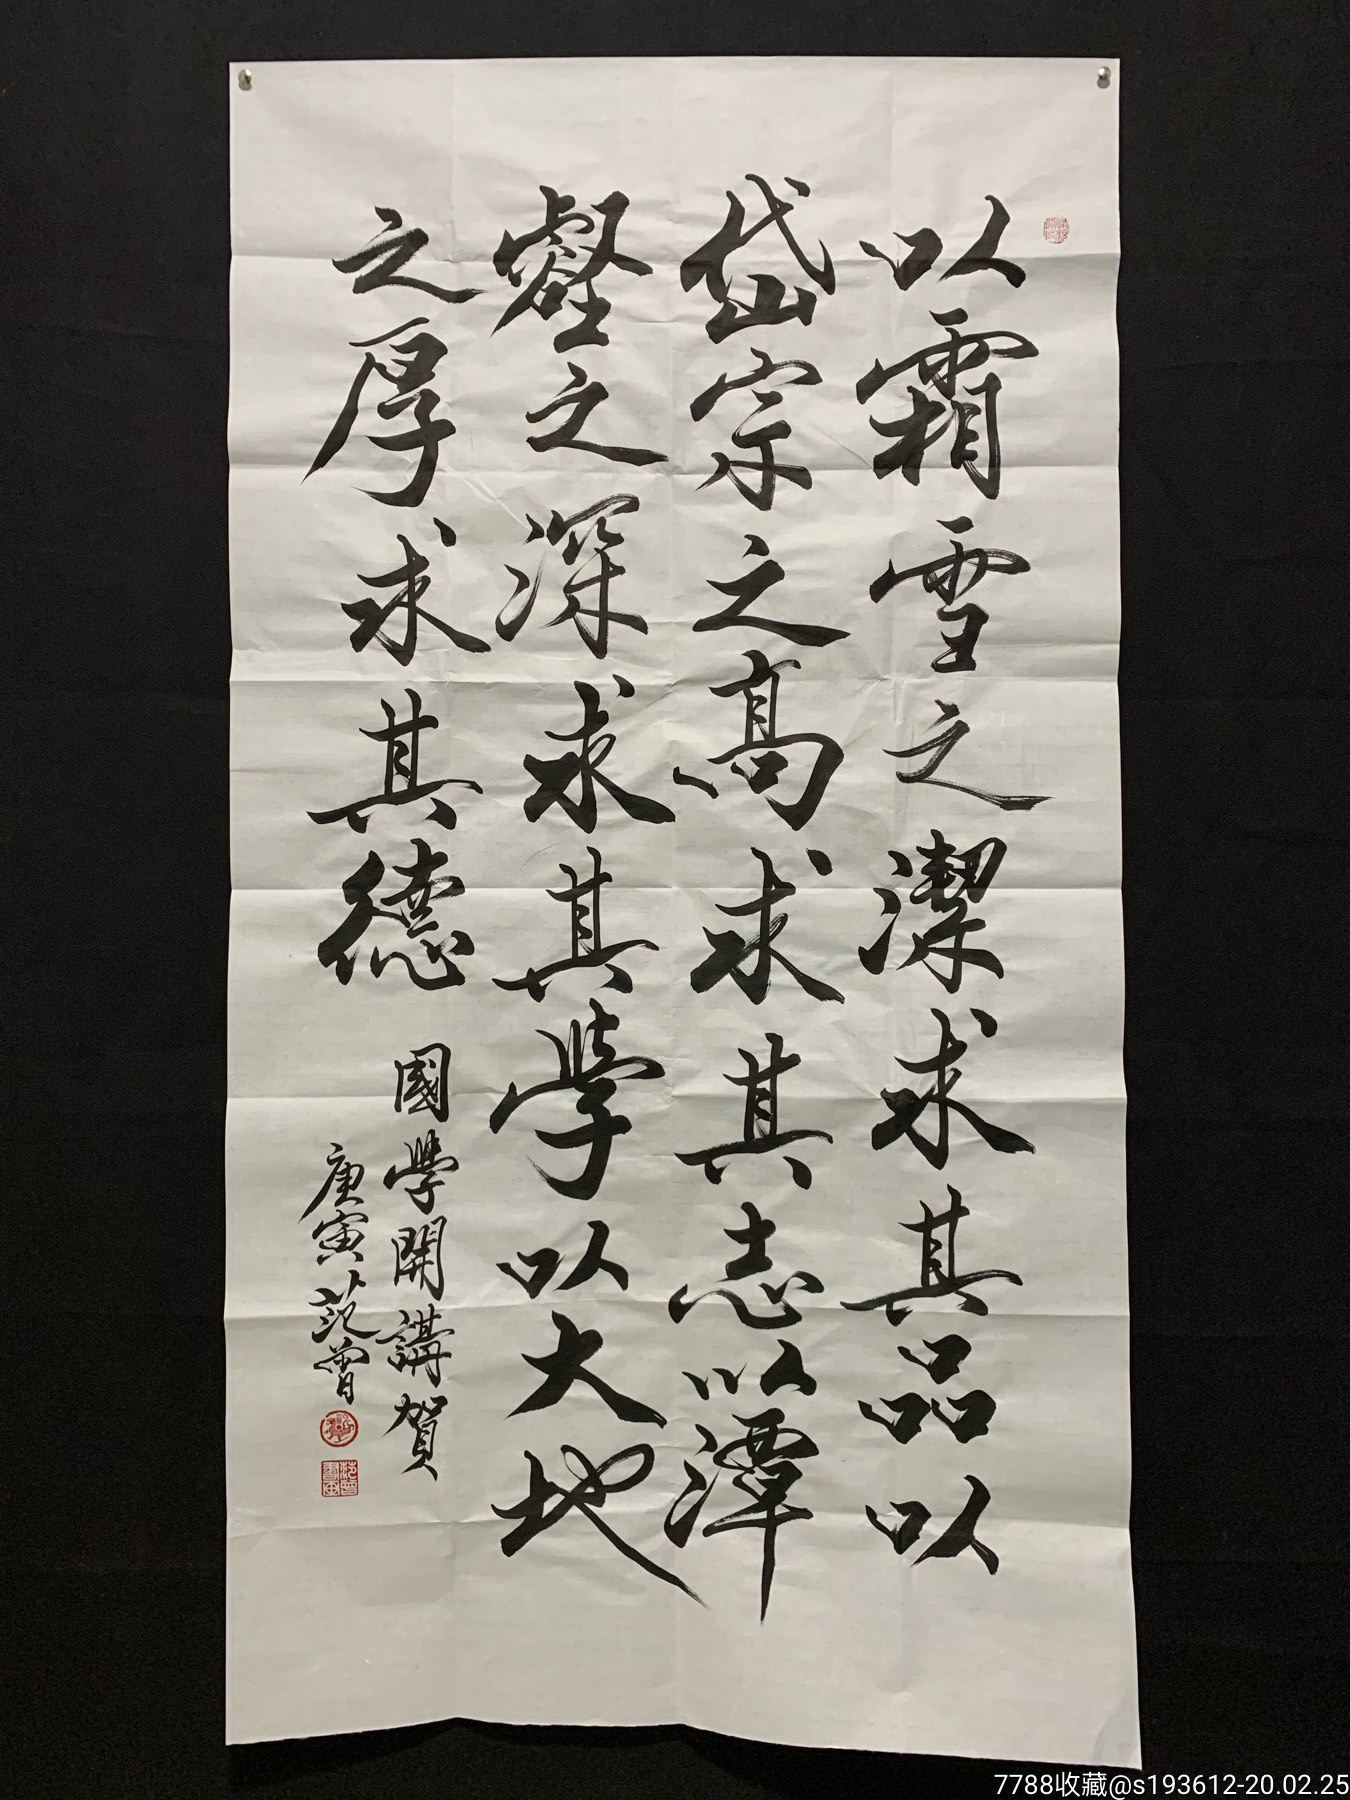 以霜雪之潔求其品以
岱宗之高求其志以潭
壑之深求其學以大地
之厚求其德
國學開講賀
庚寅范曾
7788收藏@s193612-20.02.25